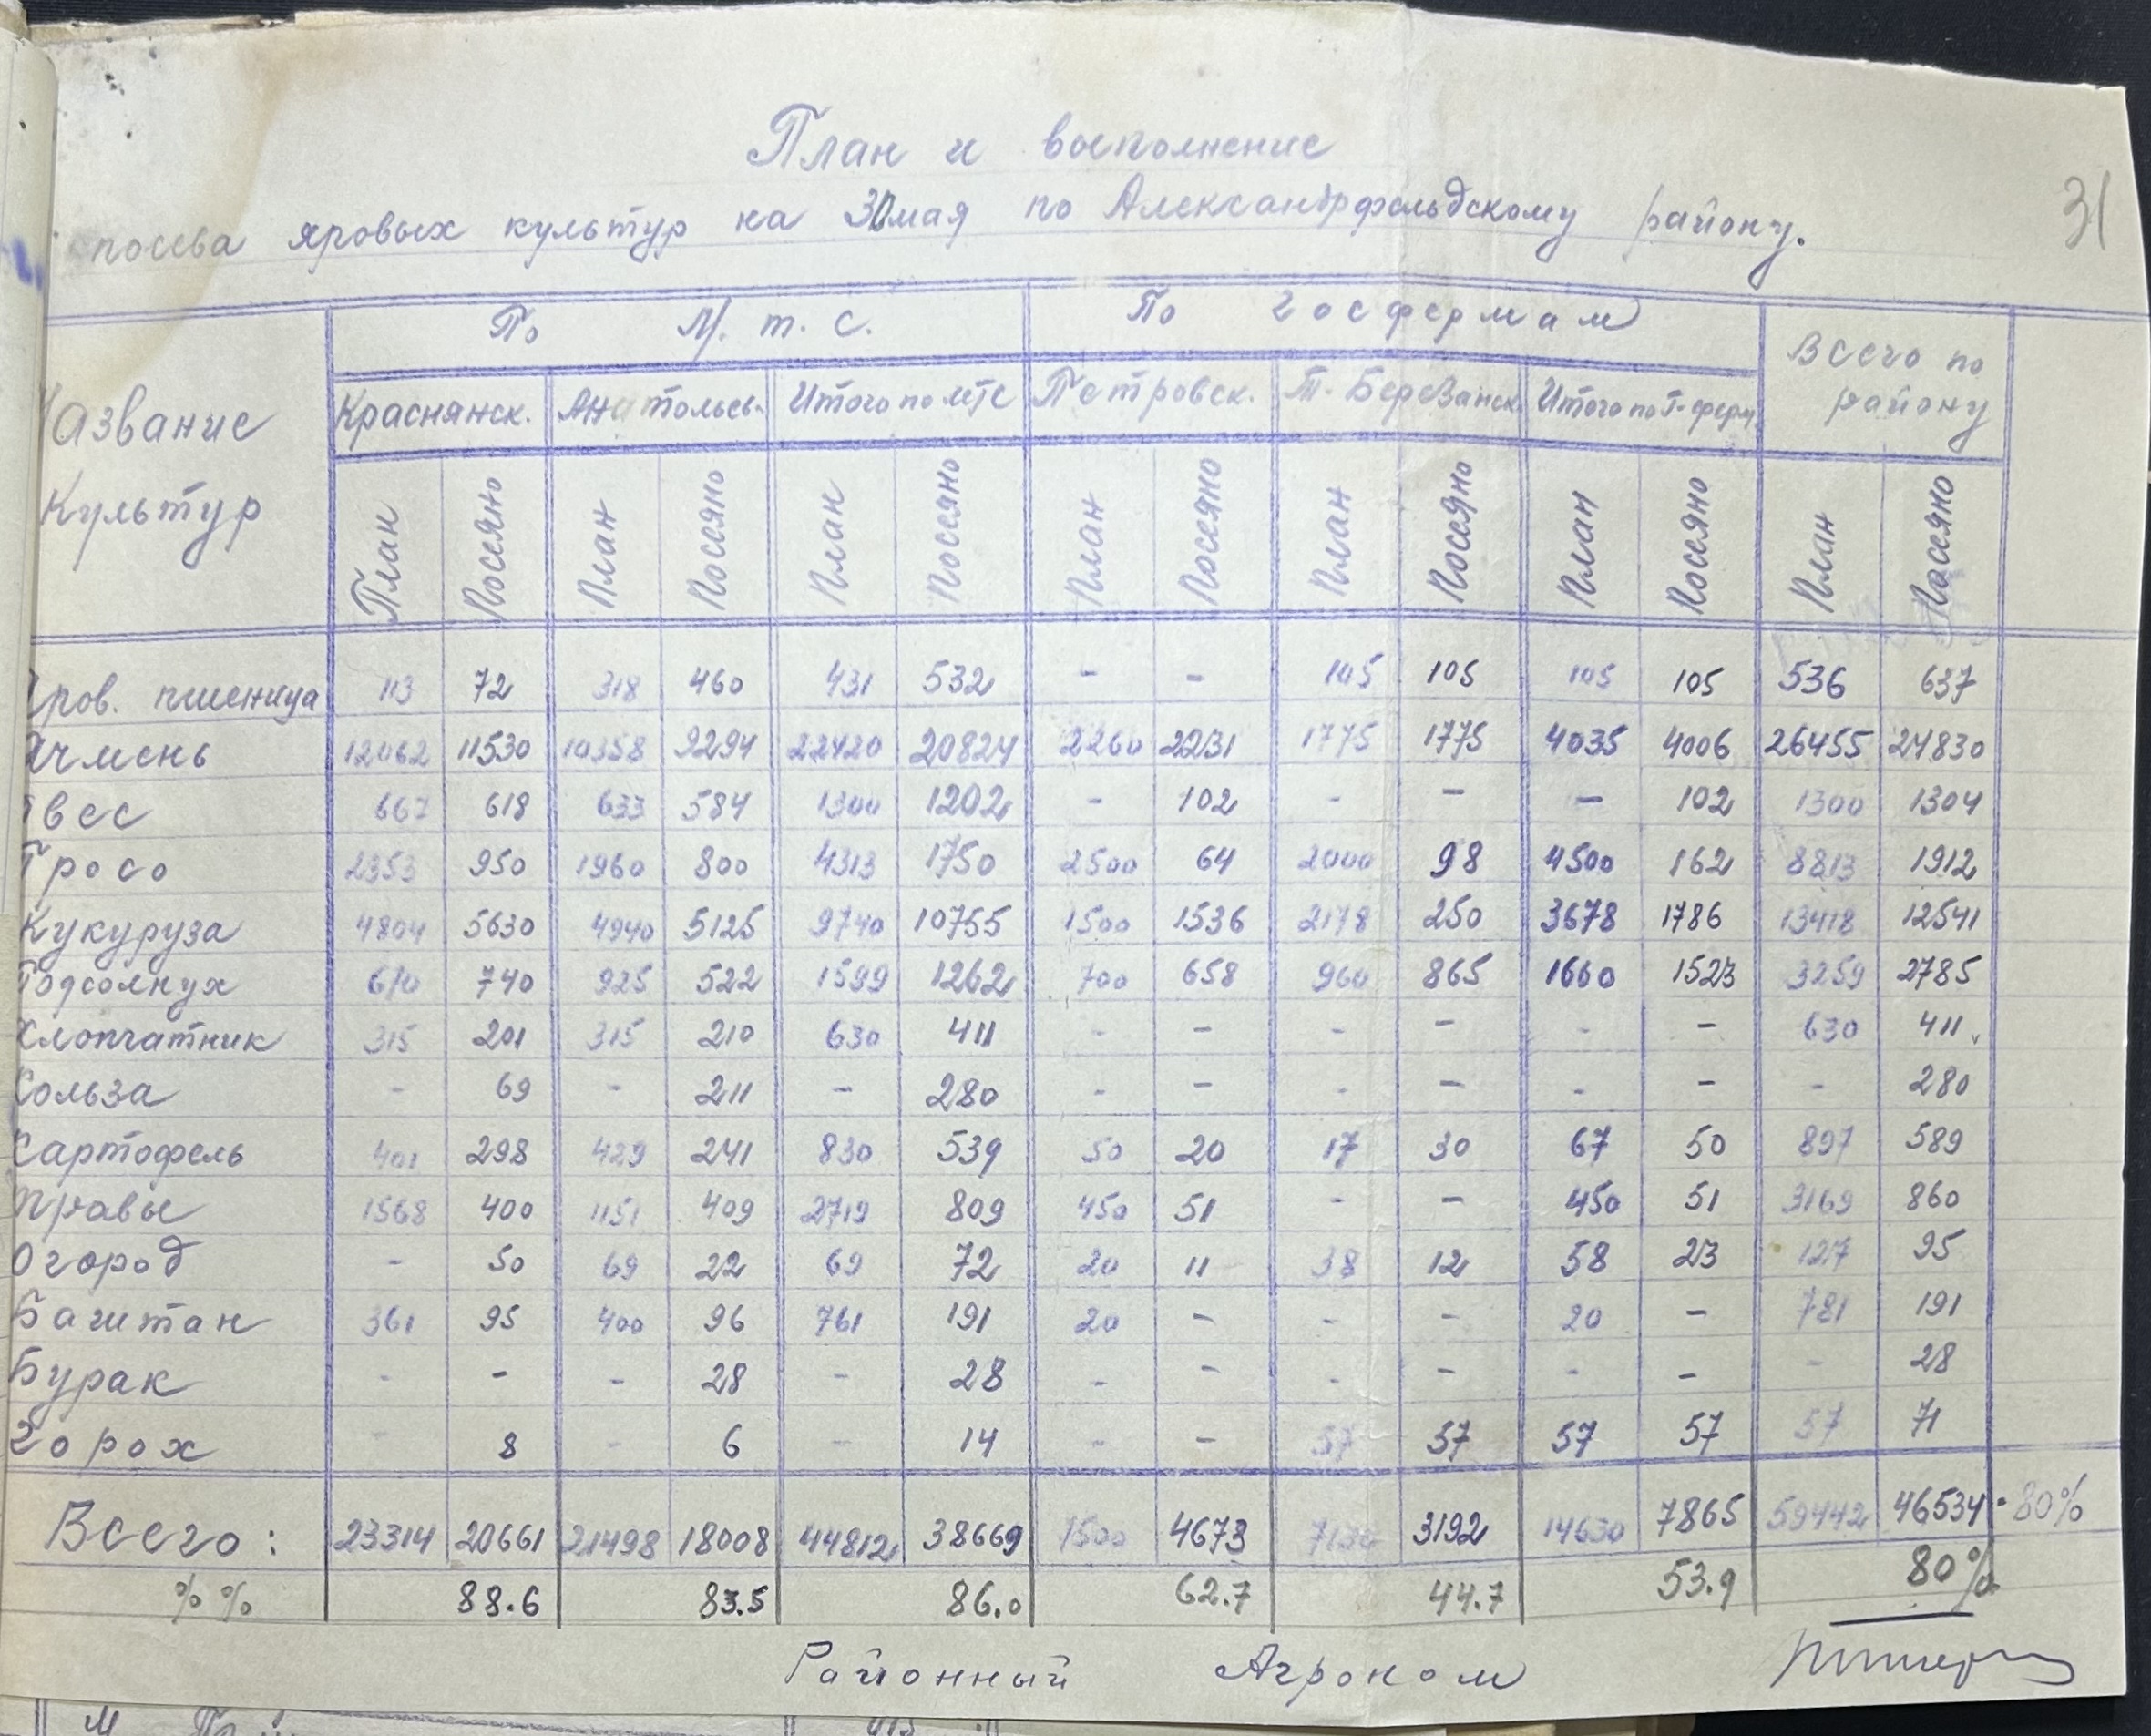 План и выполнение
посева яровых культур на 30 мая по Александрфельдскому району.
31
Название Культур
По М. т. С.
По госфермам
Всего по району
Краснянск. Анатольев. Итого по МТС Петровск. Т-Березанск. Итого по Г-ферм.
План Посеяно План Посеяно План Посеяно План Посеяно План Посеяно План Посеяно План Посеяно
Яров. пшеница 113 72 318 460 431 532 - - 105 105 105 105 536 637
Ячмень 12062 11530 10358 9294 22420 20824 2260 2231 1775 1775 4035 4006 26455 24830
Овес 667 618 633 584 1300 1202 - 102 - - - 102 1300 1304
Просо 2353 950 1960 800 4313 1750 2500 64 2000 98 4500 162 8813 1912
Кукуруза 4804 5630 4940 5125 9740 10755 1500 1536 2178 250 3678 1786 13418 12541
Подсолнух 670 740 925 522 1599 1262 700 658 960 865 1660 1523 3259 2785
Хлопчатник 315 201 315 210 630 411 - - - - - - 630 411
Кользa - 69 - 211 - 280 - - - - - - - 280
Картофель 401 298 429 241 830 539 50 20 17 30 67 50 897 589
Травы 1568 400 1151 409 2719 809 450 51 - - 450 51 3169 860
Огород - 50 69 22 69 72 20 11 38 12 58 23 127 95
Баштан 361 95 400 96 761 191 20 - - - 20 - 781 191
Бурак - - - 28 - 28 - - - - - - - 28
Горох - 8 - 6 - 14 - - 57 57 57 57 57 71
Всего: 23314 20661 21498 18008 44812 38669 7500 4673 7130 3192 14630 7865 59442 46534 · 80%
%% 88.6 83.5 86.0 62.7 44.7 53.9 80%
Районный Агроном